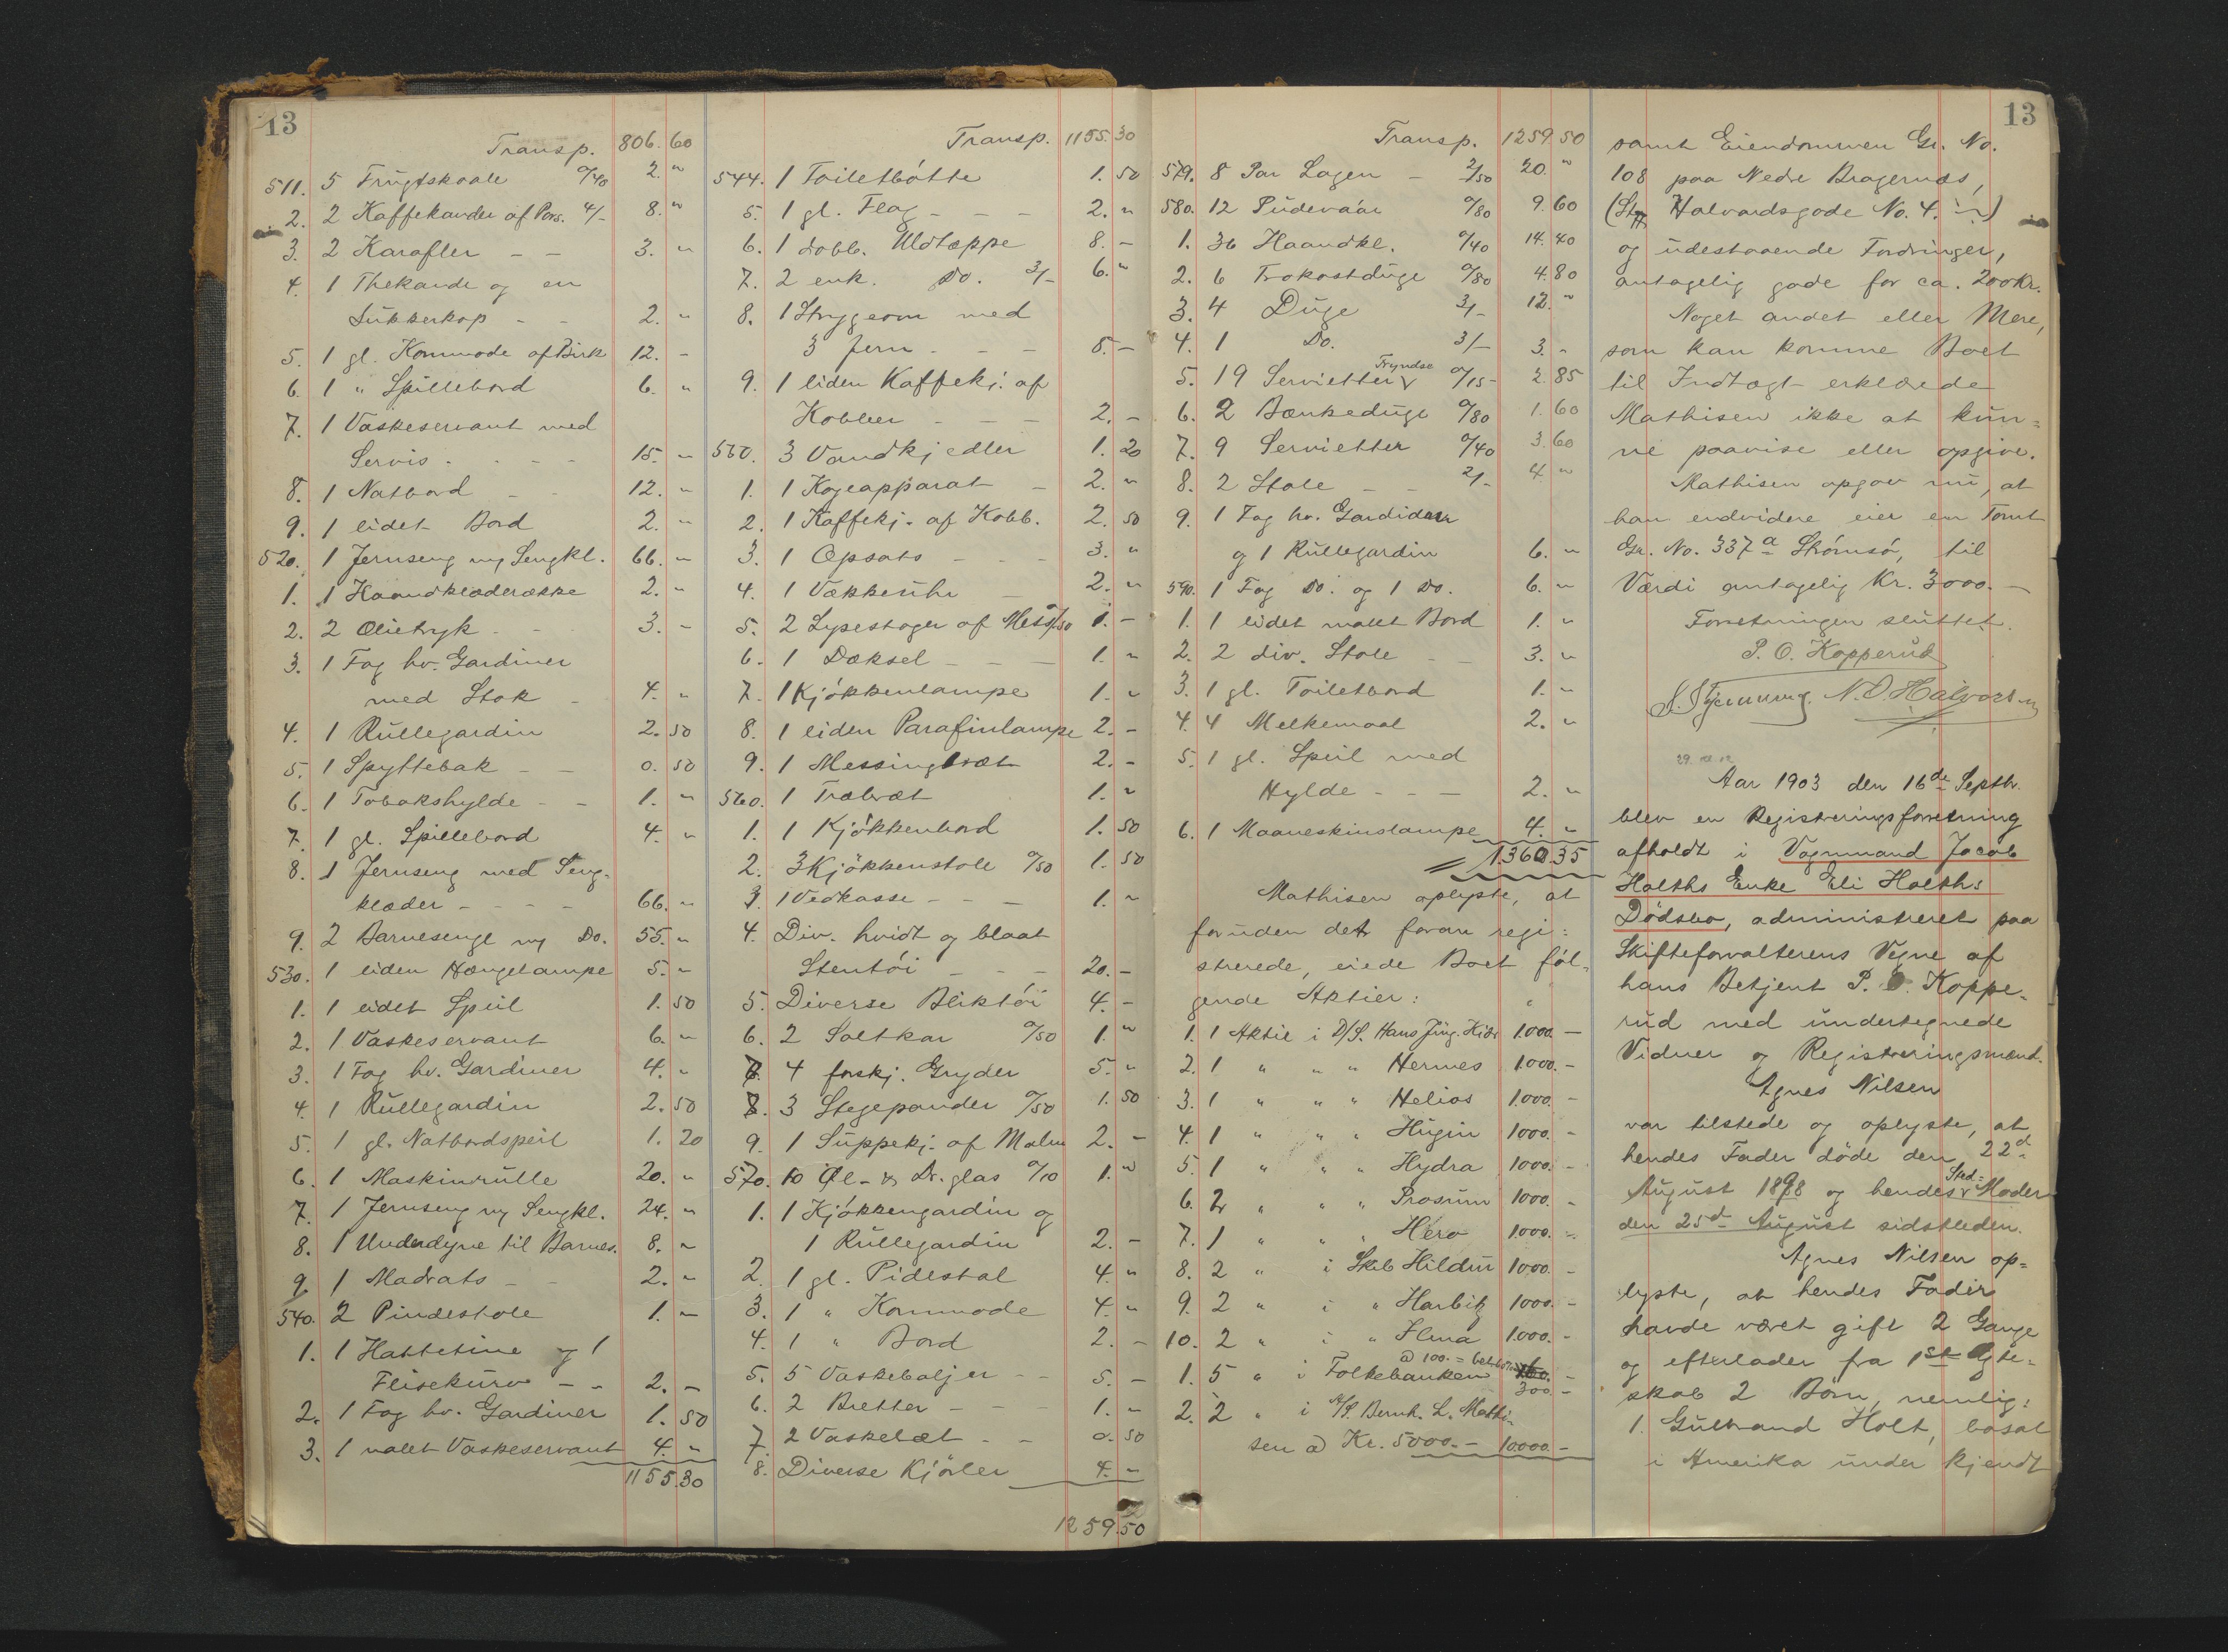 13
Transp. 806.60
511. 5 Frugtskaale 0/40 2."
2. 2 Kaffekander af Pors. 4/- 8."
3. 2 Karafler - - 3. "
4. 1 Thekande og en
Sukkerkop - - 2. "
5. 1 gl. Kommode af Birk 12. -
6. 1 " Spillebord 6. "
7. 1 Vaskeservant med
Servis. - - - 15. "
8. 1 Natbord - - 12. "
9. 1 lidet Bord 2. "
520. 1 Jernseng m/ Sengkl. 66. -
1. 1 Haandklæderække 2. "
2. 2 Olietryk - - 3. -
3. 1 Fag hv. Gardiner
med Stok - 4. "
4. 1 Rullegardin 2.50
5. 1 Spyttebak - - 0.50
6. 1 Tobakshylde - - 1. "
7. 1 gl. Spillebord 4. "
8. 1 Jernseng med Seng-
klæder - - - - 66. "
9. 2 Barnesenge m/ Do. 55. "
530. 1 liden Hængelampe 5. "
1. 1 lidet Speil 1.50
2. 1 Vaskeservant 6. "
3. 1 Fag hv. Gardiner 4. "
4. 1 Rullegardin 2.50
5. 1 gl. Natbordspeil 1.20
6. 1 Maskinrulle 20. "
7. 1 Jernseng m/ Sengkl. 24. "
8. 1 Underdyne til Barnes. 8. "
9. 1 Madrats - - 2. "
540. 2 Pindestole 1. -
1. 1 Hattetine og 1
Flisekurv - - 2. -
2. 1 Fag hv. Gardiner 1.50
3. 1 malet Vaskeservant 4. "
1155.30
Transp. 1155.30
544. 1 Toiletbøtte 1.50
5. 1 gl. Flag - - - 2. "
6. 1 dobb. Uldtæppe 8. -
7. 2 enk. Do. 3/- 6. "
8. 1 Strygeovn med
3 Jern - - - 5. -
9. 1 liden Kaffekj. af
Kobber - - - 2. -
550. 3 Vandkjedler 1.20
1. 1 Kogeapparat - 2. "
2. 1 Kaffekj. af Kobb. 2.50
3. 1 Opsats - - - 3. "
4. 1 Vækkeuhr - 2. "
5. 2 Lysestager af Mess. 0/50 1. -
6. 1 Dæksel - - - 1. "
7. 1 Kjøkkenlampe 1. "
8. 1 liden Parafinlampe 2. -
9. 1 Messingbræt 2. -
560. 1 Træbræt 1. "
1. 1 Kjøkkenbord 1.50
2. 3 Kjøkkenstole 0/50 1.50
3. 1 Vedkasse - - - 1. "
4. Div. hvidt og blaat
Stentøi - - - 20. -
5. Diverse Bliktøi 4. -
6. 2 Saltkar 0/50 1. "
7. 4 forskj. Gryder 5. "
8. 3 Stegepander 0/50 1.50
9. 1 Suppekj. af Malm 2. -
570. 10 Øl- & Dr. glas 0/10 1. "
1. 1 Kjøkkengardin og
1 Rullegardin 2. -
2. 1 gl. Pidestal 4. "
3. 1 " Kommode 4. "
4. 1 " Bord 2. -
5. 5 Vaskebaljer - - 5. -
6. 2 Bretter - - - 1. "
7. 2 Vaskebræt - - 0.50
8. Diverse Kjørler 4. -
1259.50
13
Transp. 1259.50
579. 8 Par Lagen - 2/50 20. "
580. 12 Pudevaar 0/80 9.60
1. 36 Haandkl. 0/40 14.40
2. 6 Frokostduge 0/80 4.80
3. 4 Duge 3/- 12. "
4. 1 Do. 3/- 3. "
5. 19 Servietter Fryndse 0/15 - 2.85
6. 2 Bænkeduge 0/80 1.60
7. 9 Servietter 0/40 3.60
8. 2 Stole - - 2/- 4. "
9. 1 Fag hv. Gardiner
og 1 Rullegardin 6. "
590. 1 Fag Do. og 1 Do. 6. "
1. 1 lidet malet Bord 1. "
2. 2 div. Stole - - 3. "
3. 1 gl. Toiletbord 1. "
4. 4 Melkemaal 2. "
5. 1 gl. Speil med
Hylde - - - 2. "
6. 1 Maaneskinslampe 4. "
1360.35
Mathisen oplyste, at
foruden det foran regi-
strerede, eiede Boet føl-
gende Aktier:
1. 1 Aktie i D/S. Hans Jürg. Kiær 1.000. -
2. 1 " " " Hermes 1.000. -
3. 1 " " " Helios 1.000. -
4. 1 " " " Hugin 1000. -
5. 1 " " " Hydra 1000. -
6. 2 " " " Prosum 1000. -
7. 1 " " " Hero 1.000. -
8. 2 " i Skib Hildur 1000. -
9. 2 " i " Harbitz 1000. -
10. 2 " i " Alma 1.000. -
1. 5 " i Folkebanken à 100.- 300. -
2. 2 " i A/S. Bernh. L. Mathi-
sen à Kr. 5000.- 10.000. -
samt Eiendommen Gr. No.
108 paa Nedre Bragernæs,
( Halvardsgade No. 4. )
og udestaaende Fordringer,
antagelig gode for ca. 200 Kr.
Noget andet eller Mere,
som kan komme Boet
til Indtægt erklærede
Mathisen ikke at kun-
ne paavise eller opgive.
Mathisen opgav nu, at
han endvidere eier en Tomt
Gr. No. 337a Strømsø, til
Værdi antagelig Kr. 3000. -
Forretningen sluttet.
P. O. Kopperud
N. O. Halvorsen
Aar 1903 den 16de Septbr.
blev en Registreringsforretning
afholdt i Vognmand Jacob
Holths Enke Eli Holths
Dødsbo, administreret paa
Skifteforvalterens Vegne af
hans Betjent P. O. Koppe-
rud med undertegnede
Vidner og Registreringsmænd.
Agnes Nilsen
var tilstede og oplyste, at
hendes Fader døde den 22d
August 1898 og hendes Sted- Moder
den 25d August sidstleden.
Agnes Nilsen op-
lyste, at hendes Fader
havde været gift 2 Gange
og efterlader fra 1ste Ægte-
skab 2 Børn, nemlig:
1. Gulbrand Holt, bosat
i Amerika under kjendt